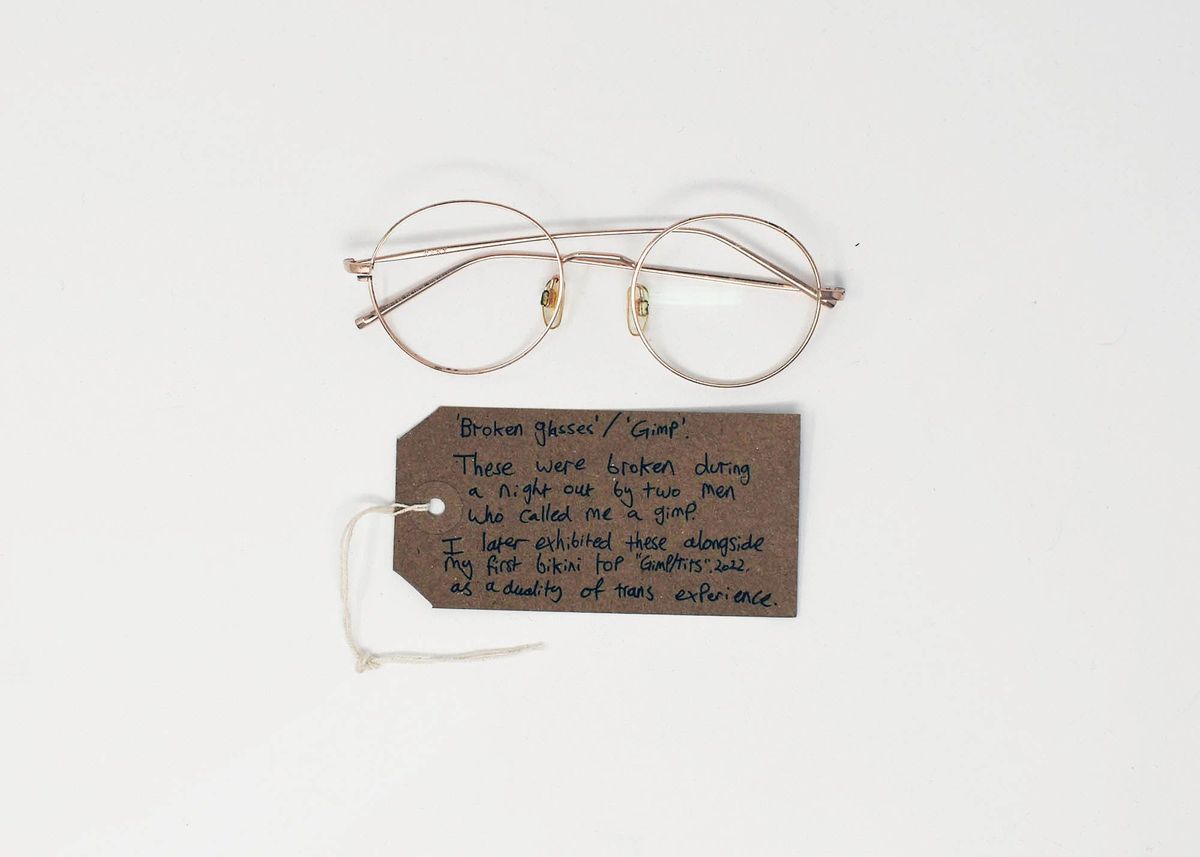 'Broken glasses' / 'Gimp'.
These were broken during
a night out by two men
who called me a gimp.
I later exhibited these alongside
my first bikini top "Gimp/Tits". 2022.
as a duality of trans experience.